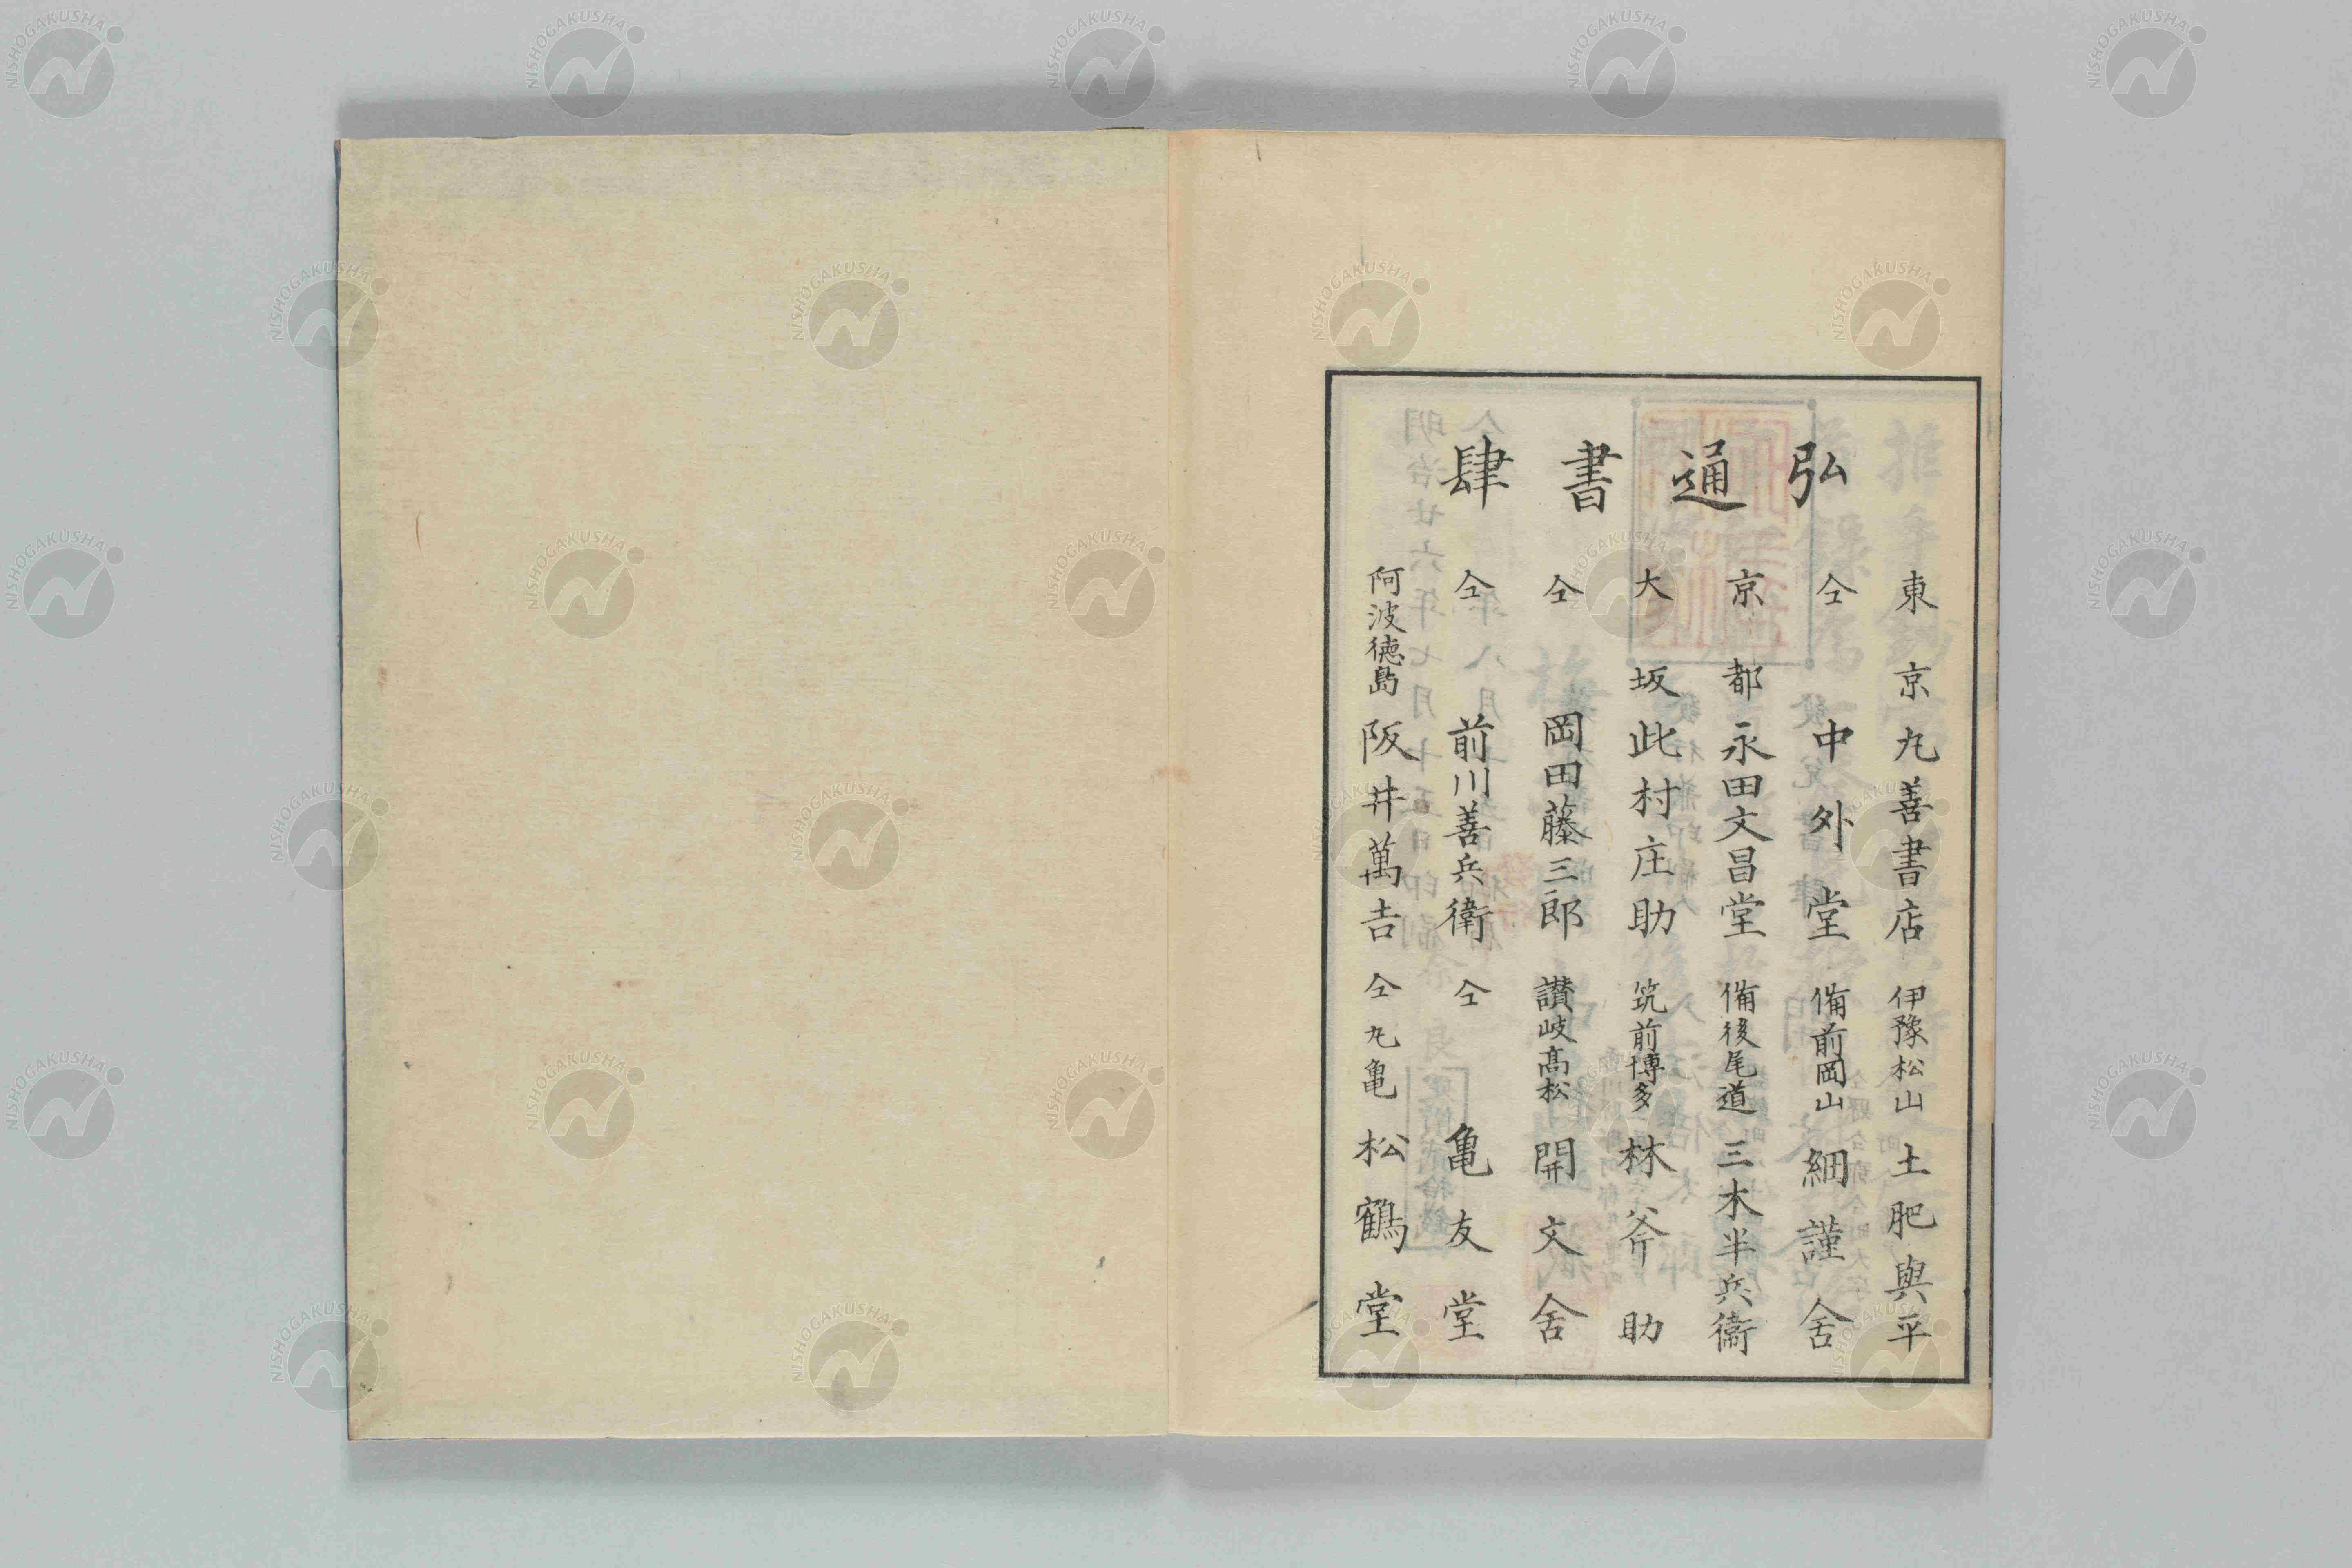 弘通書肆
東京 丸善書店 伊豫松山 土肥與平
仝 中外堂 備前岡山 細謹舎
京都 永田文昌堂 備後尾道 三木半兵衞
大坂 此村庄助 筑前博多 林斧助
仝 岡田藤三郎 讃岐髙松 開文舎
仝 前川善兵衛 仝 亀友堂
阿波徳島 阪井萬吉 仝丸亀 松鶴堂
NISHOGAKUSHA